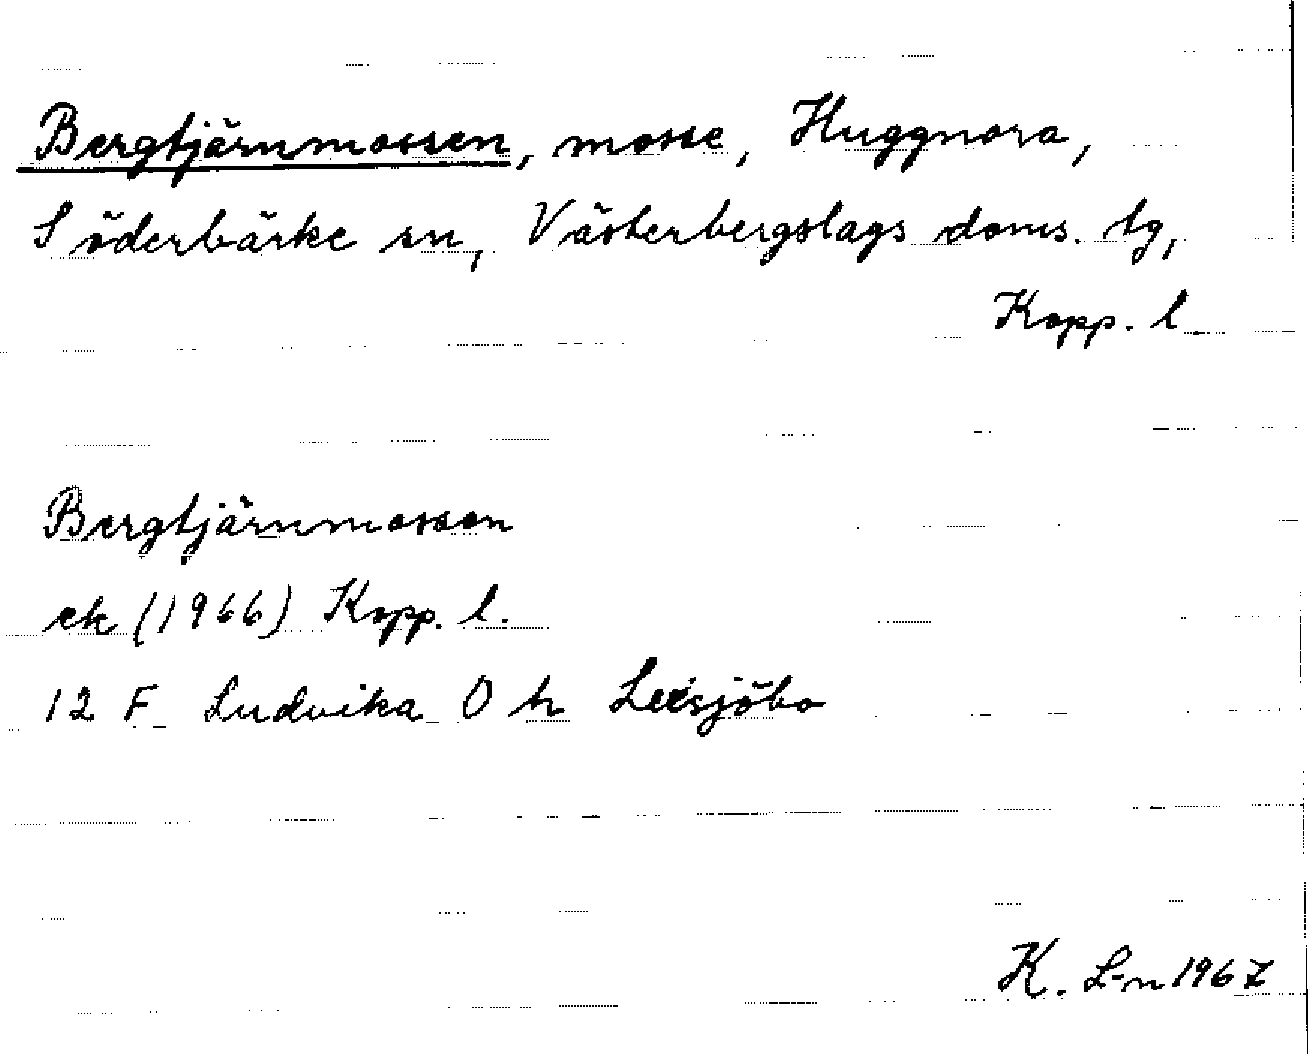 Bergtjärnmossen, mosse, Huggnora,
Söderbärke sn, Västerbergslags doms. tg,
Kopp. l
Bergtjärnmossen
ek (1966) Kopp. l.
12 F Ludvika O h Leksjöbo
K. L-n 1967